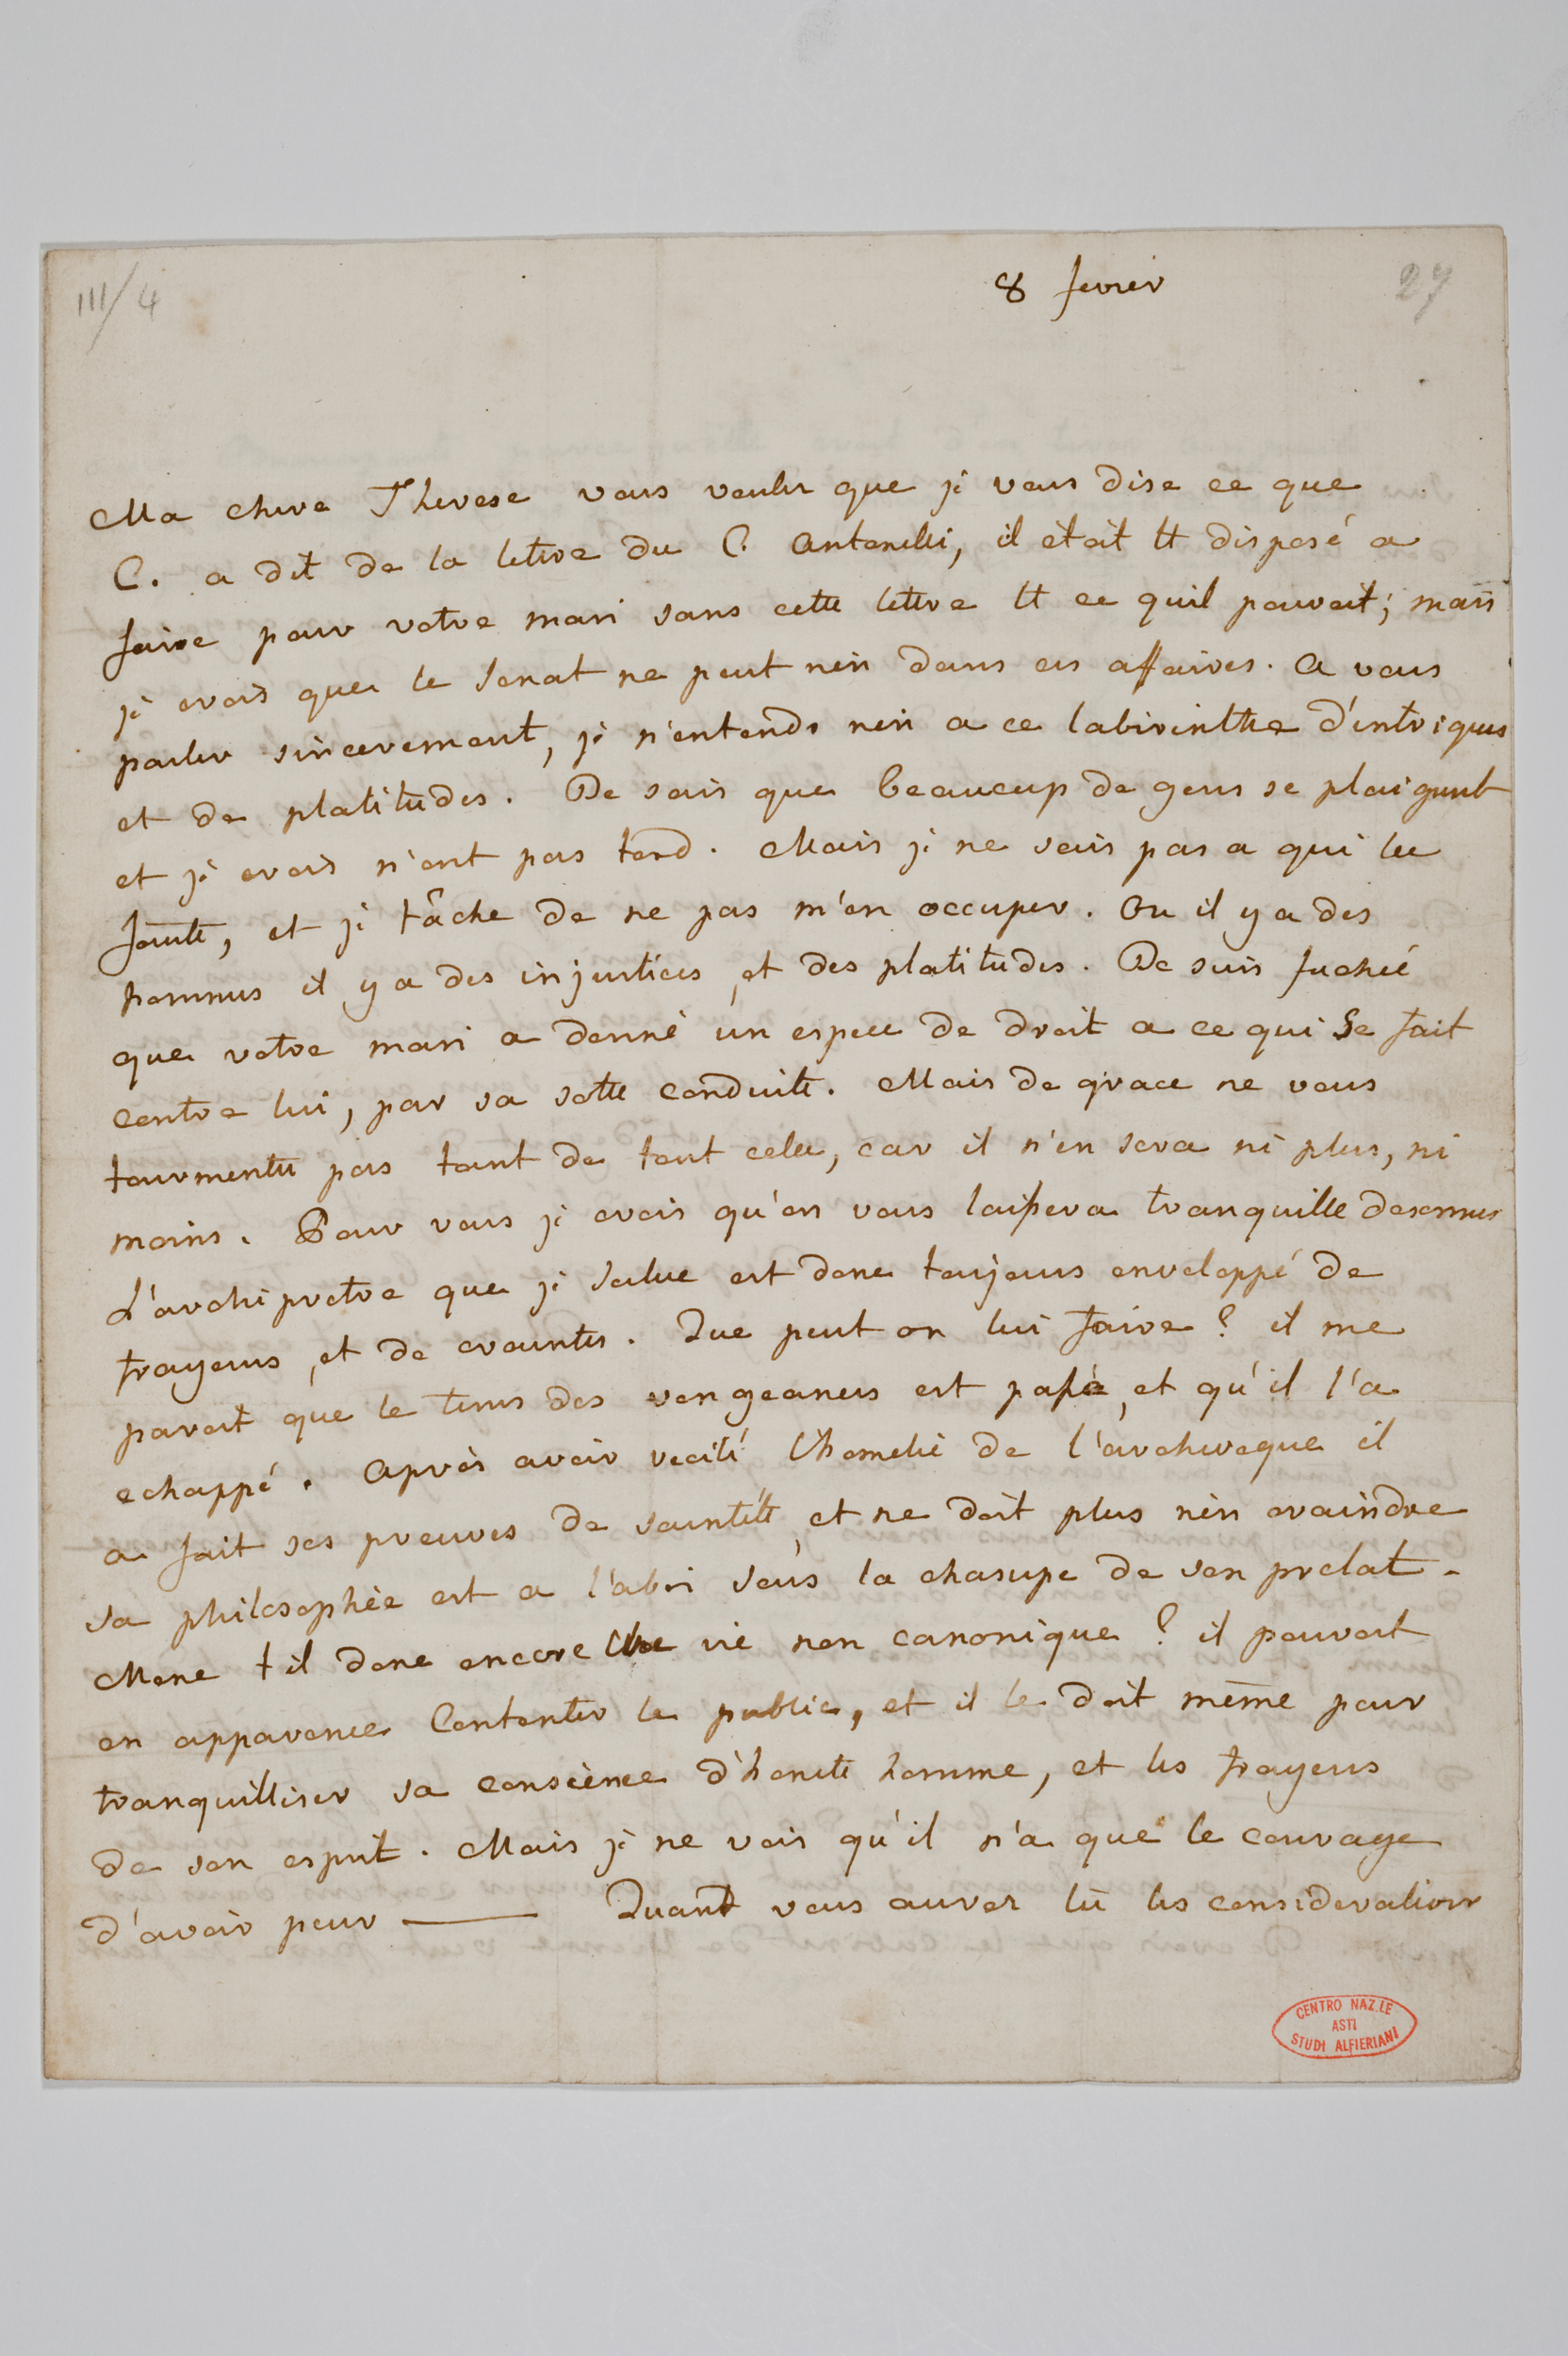 III/4
8 fevrier
27
Ma chere Therese vous voulez que je vous dise ce que
C. a dit de la lettre du C. Antonelli, il etait tt disposé a
faire pour votre mari sans cette lettre tt ce quil pouvait; mais
je crois que le Senat ne peut rien dans ces affaires. A vous
parler sincerement, je n'entends rien a ce labirinthe d'intrigues
et de platitudes. Je sais que beaucoup de gens se plaignent
et je crois n'ont pas tord. Mais je ne sais pas a qui la
faute, et je tâche de ne pas m'en occuper. Ou il y a des
hommes il y a des injustices, et des platitudes. Je suis fachée
que votre mari a donné un espece de droit a ce qui se fait
contre lui, par sa sotte conduite. Mais de grace ne vous
tourmentez pas tant de tout cela, car il n'en sera ni plus, ni
moins. Pour vous je crois qu'on vous laissera tranquille
L'archipretre que je salue est donc toujours enveloppé de
frayeurs, et de craintes. Que peut on lui faire? il me
paroit que le tems des vengeances est passé, et qu'il l'a
echappé. Après avoir recité l'homelie de l'archeveque il
a fait ses preuves de sainteté, et ne doit plus rien craindre
sa philosophie est a l'abri sous la chasupe de son prelat.
Mene t il donc encore une vie non canonique? il pouvoit
en apparence contenter le public, et il le doit même pour
tranquilliser sa conscience d'honete homme, et les frayeurs
de son esprit. Mais je ne vois qu'il n'a que le courage
d'avoir peur —— Quant vous aurez lû les considerations
CENTRO NAZ.LE
ASTI
STUDI ALFIERIANI